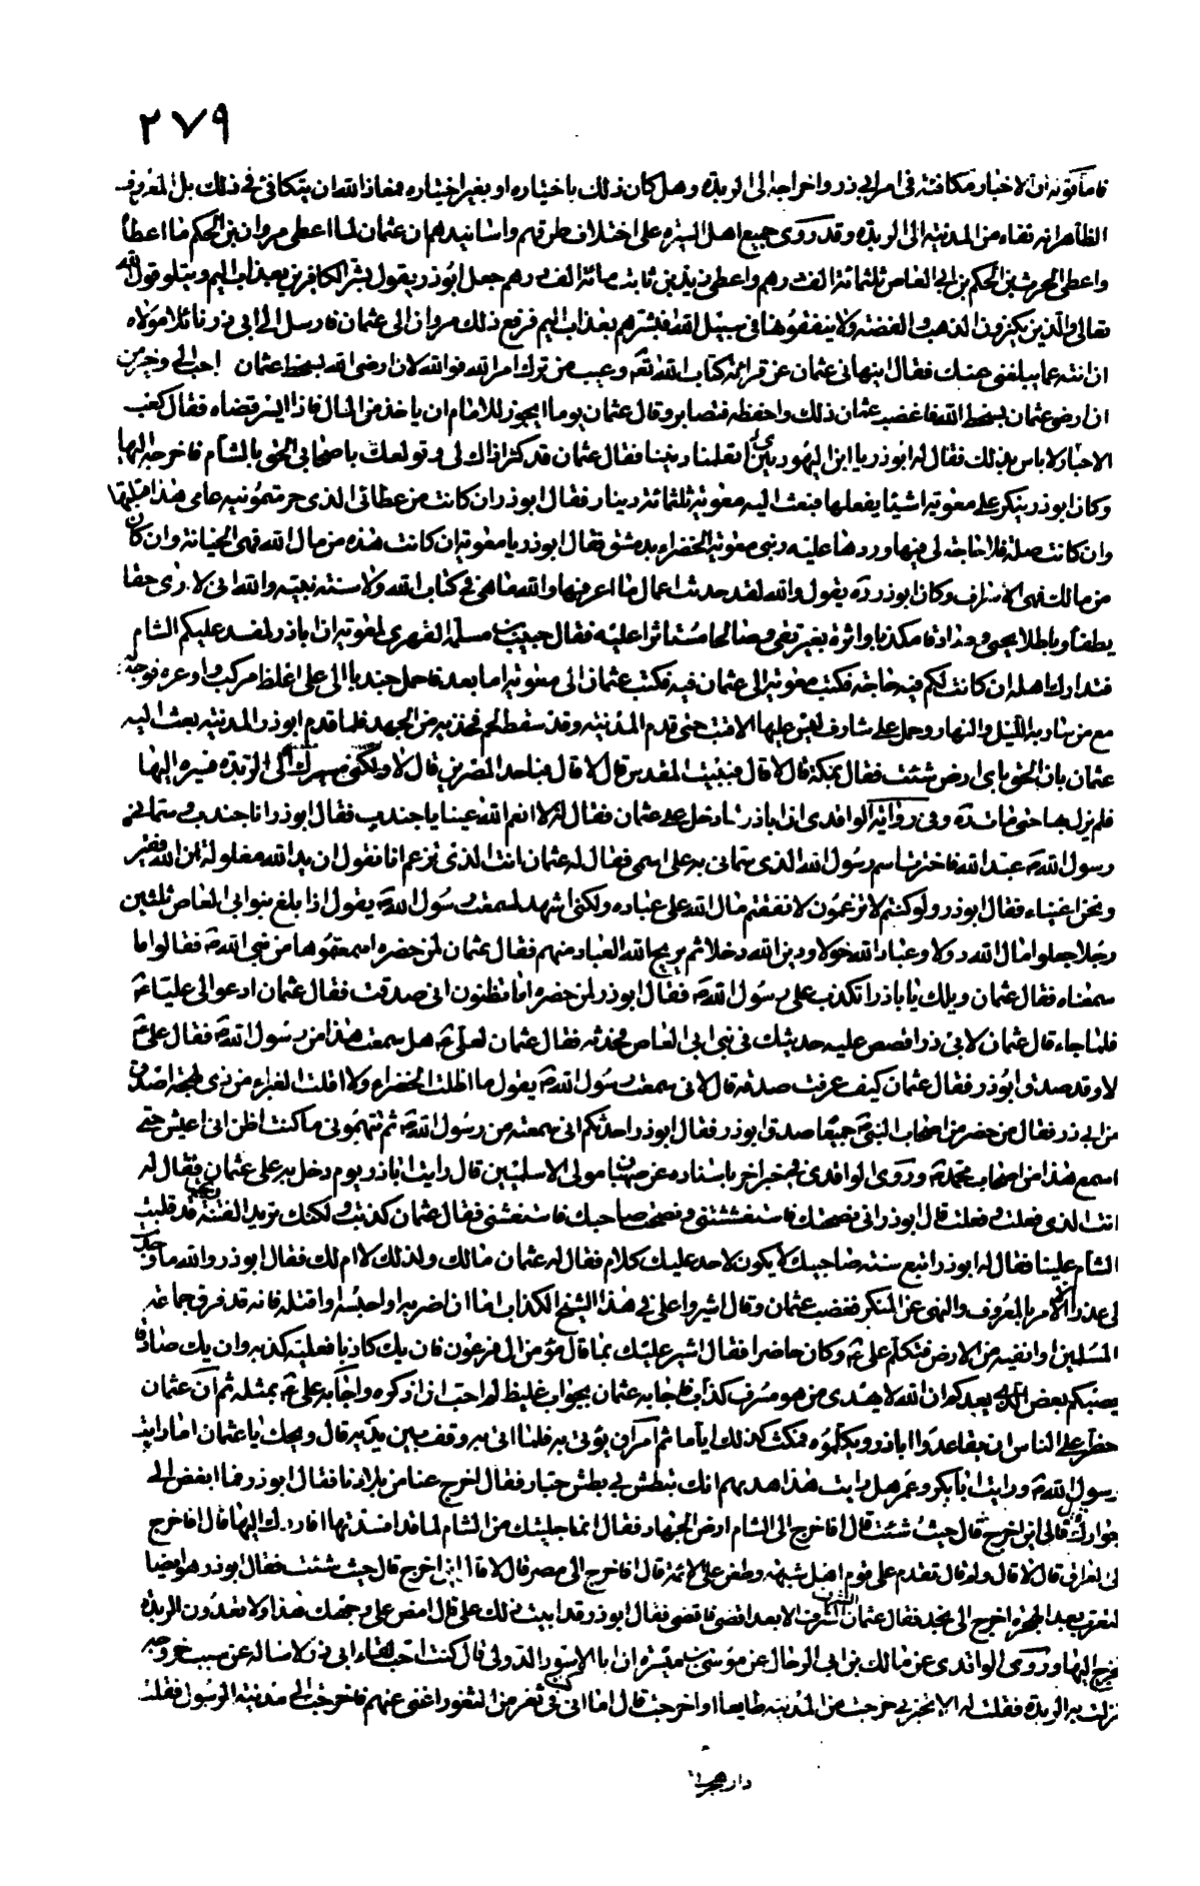 ٢٧٩
فاما قوله ان الاخبار متكافئة فى امر ابى ذر واخراجه الى الربذة وهل كان ذلك باختياره او بغير اختياره فمعاذ الله ان يتكافئ فى ذلك بل المعروف
الظاهر انه نفاه من المدينة الى الربذة وقد روى جميع اهل السيرة على اختلاف طرقهم واسانيدهم ان عثمان لما اعطى مروان بن الحكم ما اعطاه
واعطى الحرث بن الحكم بن ابى العاص ثلثمائة الف درهم واعطى زيد بن ثابت مائة الف درهم جعل ابوذر يقول بشر الكافرين بعذاب اليم ويتلو قول الله
تعالى والذين يكنزون الذهب والفضة ولا ينفقونها فى سبيل الله فبشرهم بعذاب اليم فرفع ذلك مروان الى عثمان فارسل الى ابى ذر نائلا مولاه
ان انته عما يبلغنى عنك فقال اينهانى عثمان عن قرائة كتاب الله تعالى وعيب من ترك امر الله فوالله لان ارضى الله بسخط عثمان احب الى وخير من
ان ارضى عثمان بسخط الله فاغضب عثمان ذلك واحفظه فتصابر وقال عثمان يوما ايجوز للامام ان ياخذ من المال فاذا ايسر قضاه فقال كعب
الاحبار لا باس بذلك فقال له ابوذر يا ابن اليهوديين اتعلمنا ديننا فقال عثمان قد كثر اذاك لى وتولعك باصحابى الحق بالشام فاخرجه اليها
وكان ابوذر ينكر على معوية اشياء يفعلها فبعث اليه معوية ثلثمائة دينار فقال ابوذر ان كانت من عطائى الذى حرمتمونيه عامى هذا قبلتها
وان كانت صلة فلا حاجة لى فيها وردها عليه وبنى معوية الخضراء بدمشق فقال ابوذر يا معوية ان كانت هذه من مال الله فهى الخيانة وان كان
من مالك فهى الاسراف وكان ابوذر ره يقول والله لقد حدثت اعمال ما اعرفها والله ما هى فى كتاب الله ولا سنة نبيه والله انى لارى حقا
يطفأ وباطلا يحيى وصادقا مكذبا واثرة بغير تقى وصالحا مستاثرا عليه فقال حبيب بن مسلمة الفهرى لمعوية ان اباذر لمفسد عليكم الشام
فتدارك اهله ان كانت لكم فيه حاجة فكتب معوية الى عثمان فيه فكتب عثمان الى معوية اما بعد فاحمل جندبا الى على اغلظ مركب واوعره فوجه به
مع من سار به الليل والنهار وحمله على شارف ليس عليها الا قتب حتى قدم المدينة وقد سقط لحم فخذيه من الجهد فلما قدم ابوذر المدينة بعث اليه
عثمان بان الحق باى ارض شئت فقال بمكة قال لا قال فببيت المقدس قال لا قال فباحد المصرين قال لا ولكنى مسيرك الى الربذة فسيره اليها
فلم يزل بها حتى مات ره وفى رواية الواقدى ان اباذر لما دخل على عثمان فقال له لا انعم الله عينا يا جنديب فقال ابوذر انا جندب وسمانى
رسول الله ص عبد الله فاخترت اسم رسول الله الذى سمانى به على اسمى فقال له عثمان انت الذى تزعم انا نقول ان يد الله مغلولة ان الله فقير
ونحن اغنياء فقال ابوذر ولو كنتم لا تزعمون لانفقتم مال الله على عباده ولكنى اشهد لسمعت رسول الله ص يقول اذا بلغ بنو ابى العاص ثلثين
رجلا جعلوا مال الله دولا وعباد الله خولا ودين الله دخلا ثم يريح الله العباد منهم فقال عثمان لمن حضره اسمعتموها من نبى الله ص فقالوا ما
سمعناه فقال عثمان ويلك يا اباذر اتكذب على رسول الله ص فقال ابوذر لمن حضره اما تظنون انى صدقت فقال عثمان ادعو الى عليا ع
فلما جاء قال عثمان لابى ذر اقصص عليه حديثك فى بنى ابى العاص فحدثه فقال عثمان لعلى ع هل سمعت هذا من رسول الله ص فقال على ع
لا وقد صدق ابوذر فقال عثمان كيف عرفت صدقه قال لانى سمعت رسول الله ص يقول ما اظلت الخضراء ولا اقلت الغبراء من ذى لهجة اصدق
من ابى ذر فقال من حضر من اصحاب النبى ص جميعا صدق ابوذر فقال ابوذر احدثكم انى سمعته من رسول الله ص ثم تتهمونى ما كنت اظن انى اعيش حتى
اسمع هذا من اصحاب محمد ص وروى الواقدى فى خبر اخر باسناده عن صهبان مولى الاسلميين قال رايت اباذر يوم دخل به على عثمان فقال له
انت الذى فعلت وفعلت قال ابوذر انى نصحتك فاستغششتنى ونصحت صاحبك فاستغشنى فقال عثمان كذبت ولكنك تريد الفتنة وتحبها قد قلبت
الشام علينا فقال له ابوذر اتبع سنة صاحبيك لا يكون لاحد عليك كلام فقال له عثمان مالك ولذلك لا ام لك فقال ابوذر والله ما وجدت
لى عذرا الا الامر بالمعروف والنهى عن المنكر فغضب عثمان وقال اشيروا على فى هذا الشيخ الكذاب اما ان اضربه او احبسه او اقتله فانه قد فرق جماعة
المسلمين او انفيه من الارض فتكلم على ع وكان حاضرا فقال اشير عليك بما قال مؤمن ال فرعون فان يك كاذبا فعليه كذبه وان يك صادقا
يصبكم بعض الذى يعدكم ان الله لا يهدى من هو مسرف كذاب فاجابه عثمان بجواب غليظ لم احب ان اذكره واجابه على ع بمثله ثم ان عثمان
حظر على الناس ان يقاعدوا اباذر ويكلموه فمكث كذلك اياما ثم امر ان يؤتى به فلما اتى به وقف بين يديه قال ويحك يا عثمان اما رايت
رسول الله ص ورايت ابابكر وعمر هل رايت هذا هديهم انك تبطش بى بطش جبار فقال اخرج عنا من بلادنا فقال ابوذر فما ابغض الى
جوارك فالى اين اخرج قال حيث شئت قال فاخرج الى الشام ارض الجهاد فقال انما جلبتك من الشام لما قد افسدتها افاردك اليها قال افاخرج
الى العراق قال لا قال ولم قال تقدم على قوم اهل شبهة وطعن على الائمة قال فاخرج الى مصر قال لا قال اين اخرج قال حيث شئت فقال ابوذر هو ايضا
لتعرب بعد الهجرة اخرج الى نجد فقال عثمان الشرف الابعد اقصى فاقصى فقال ابوذر قد ابيت ذلك على قال امض على وجهك هذا ولا تعدون الربذة
فخرج اليها وروى الواقدى عن مالك بن ابى الرجال عن موسى بن ميسرة ان ابا الاسود الدولى قال كنت احب لقاء ابى ذر لاساله عن سبب خروجه
نزلت به الربذة فقلت له الا تخبرنى خرجت من المدينة طايعا او اخرجت قال اما انى كنت فى ثغر من الثغور اغنى عنهم فاخرجت الى مدينة الرسول فقلت
دار هجرة